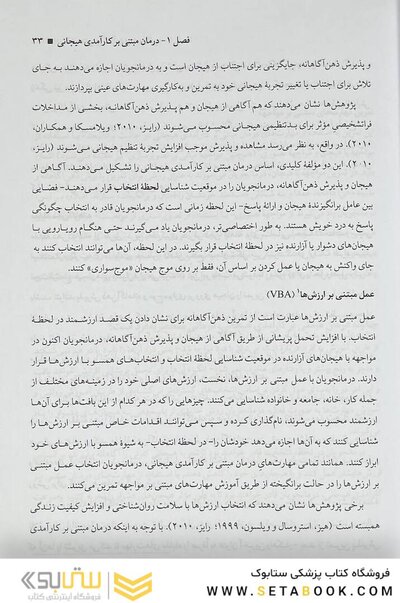 فصل ۱- درمان مبتنی بر کارآمدی هیجانی ■ ۳۳
و پذیرش ذهن‌آگاهانه، جایگزینی برای اجتناب از هیجان است و به درمانجویان اجازه می‌دهند به جای
تلاش برای اجتناب یا تغییر تجربهٔ هیجانی خود به تمرین و به‌کارگیری مهارت‌های عینی بپردازند.
پژوهش‌ها نشان می‌دهند که هم آگاهی از هیجان و هم پذیرش ذهن‌آگاهانه، بخشی از مداخلات
فراتشخیصیِ مؤثر برای بدتنظیمی هیجانی محسوب می‌شوند (رایز، ۲۰۱۰؛ ویلامسکا و همکاران،
۲۰۱۰). در واقع، به نظر می‌رسد مشاهده و پذیرش موجب افزایش تجربهٔ تنظیم هیجانی می‌شوند (رایز،
۲۰۱۰). این دو مؤلفهٔ کلیدی، اساس درمان مبتنی بر کارآمدی هیجانی را تشکیل می‌دهند. آگاهی از
هیجان و پذیرش ذهن‌آگاهانه، درمانجویان را در موقعیت شناسایی لحظهٔ انتخاب قرار می‌دهند- فضایی
بین عامل برانگیزندهٔ هیجان و ارائهٔ پاسخ- این لحظه زمانی است که درمانجویان قادر به انتخاب چگونگی
پاسخ به درد خویش هستند. به طور اختصاصی‌تر، درمانجویان یاد می‌گیرند حتی هنگام رویارویی با
هیجان‌های دشوار یا آزارنده نیز در لحظهٔ انتخاب قرار بگیرند. در این لحظه، آن‌ها می‌توانند انتخاب کنند به
جای واکنش به هیجان یا عمل کردن بر اساس آن، فقط بر روی موج هیجان «موج‌سواری» کنند.
عمل مبتنی بر ارزش‌ها¹ (VBA)
عمل مبتنی بر ارزش‌ها عبارت است از تمرین ذهن‌آگاهانه برای نشان دادن یک قصد ارزشمند در لحظهٔ
انتخاب. با افزایش تحمل پریشانی از طریق آگاهی از هیجان و پذیرش ذهن‌آگاهانه، درمانجویان اکنون در
مواجهه با هیجان‌های آزارنده در موقعیت شناسایی لحظهٔ انتخاب و انتخاب‌های همسو با ارزش‌ها قرار
دارند. درمانجویان با عمل مبتنی بر ارزش‌ها، نخست، ارزش‌های اصلی خود را در زمینه‌های مختلف از
جمله کار، خانه، جامعه و خانواده شناسایی می‌کنند. چیزهایی را که در هر کدام از این بافت‌ها برای آن‌ها
ارزشمند محسوب می‌شوند، نام‌گذاری کرده و سپس می‌توانند اقدامات خاص مبتنی بر ارزش‌ها را
شناسایی کنند که به آن‌ها اجازه می‌دهد خودشان را- در لحظهٔ انتخاب- به شیوهٔ همسو با ارزش‌های خود
ابراز کنند. همانند تمامی مهارت‌های درمان مبتنی بر کارآمدی هیجانی، درمانجویان انتخاب عمل مبتنی
بر ارزش‌ها را در حالت برانگیخته از طریق آموزش مهارت‌های مبتنی بر مواجهه تمرین می‌کنند.
برخی پژوهش‌ها نشان می‌دهند که انتخاب ارزش‌ها با سلامت روان‌شناختی و افزایش کیفیت زندگی
همبسته است (هیز، استروسال و ویلسون، ۱۹۹۹؛ رایز، ۲۰۱۰). با توجه به اینکه درمان مبتنی بر کارآمدی
فروشگاه کتاب پزشکی ستابوک
WWW.SETABOOK.COM
ستابوک
فروشگاه اینترنتی کتاب